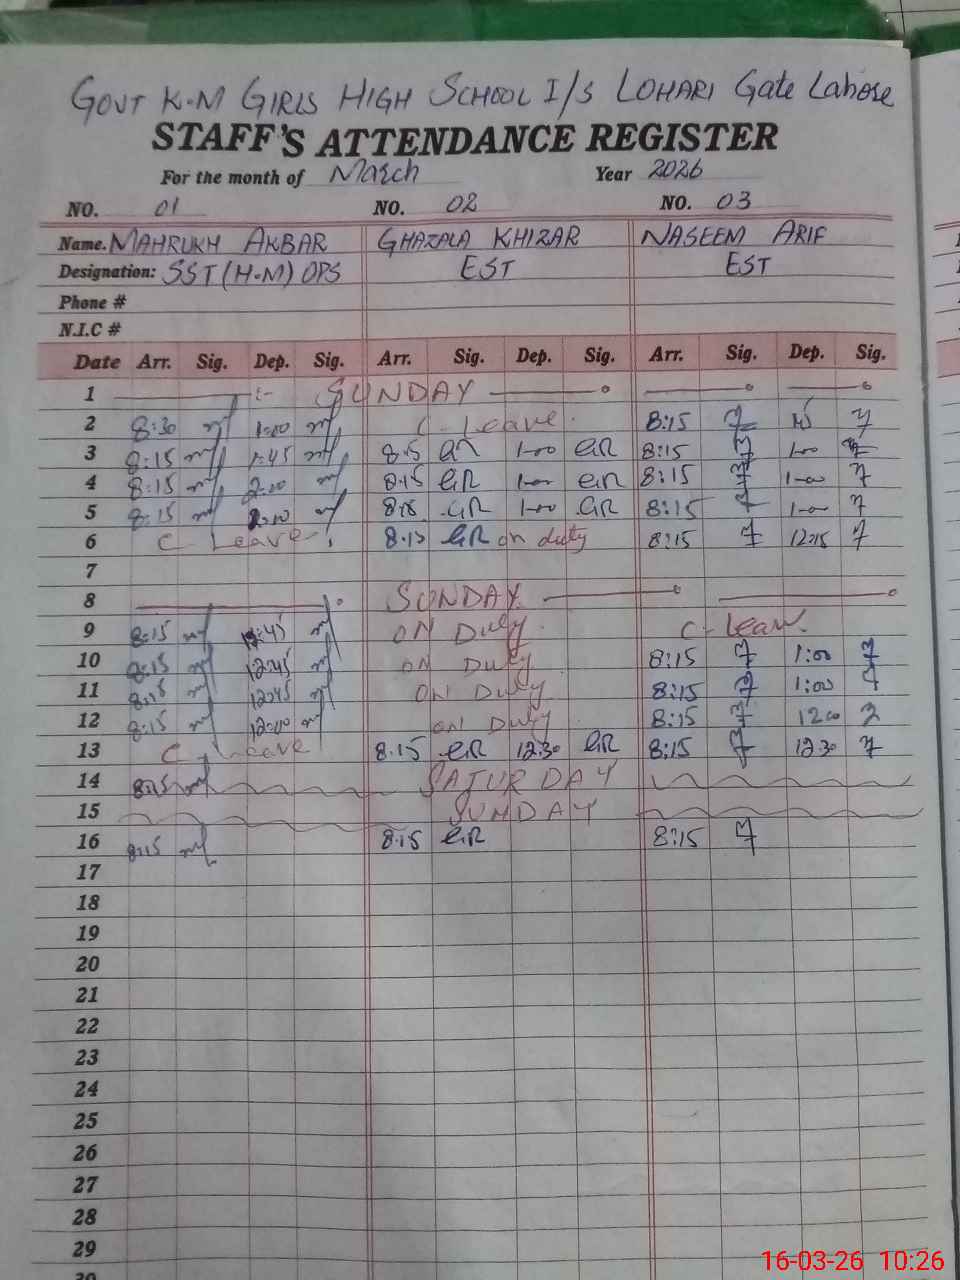 GOVT K.M GIRLS HIGH SCHOOL I/S LOHARI Gate Lahore
STAFF'S ATTENDANCE REGISTER
For the month of March Year 2026
NO. 01 NO. 02 NO. 03
Name. MAHRUKH AKBAR GHAZALA KHIZAR NASEEM ARIF
Designation: SST (H.M) OPS EST EST
Phone #
N.I.C #
Date Arr. Sig. Dep. Sig. Arr. Sig. Dep. Sig. Arr. Sig. Dep. Sig.
1 SUNDAY
2 8:30 1:00 C- Leave 8:15
3 8:15 1:45 8.15 GR 1-00 GR 8:15 1-00
4 8:15 2:00 8.15 GR 1-00 GR 8:15 1-00
5 8:15 GR 1-00 GR 8:15 1-00
6 C- Leave 8.15 GR on duty 8:15 12:15
7
8 SUNDAY
9 8:15 12:45 ON Duty C- Leave
10 8:15 12:45 ON Duty 8:15 1:00
11 8:15 12:45 ON Duty 8:15 1:00
12 8:15 ON Duty 8:15 1200
13 C- Leave 8.15 GR 12:30 GR 8:15 12 30
14 8:15 SATURDAY
15 SUNDAY
16 8:15 8.15 GR 8:15
17
18
19
20
21
22
23
24
25
26
27
28
29
30
16-03-26 10:26